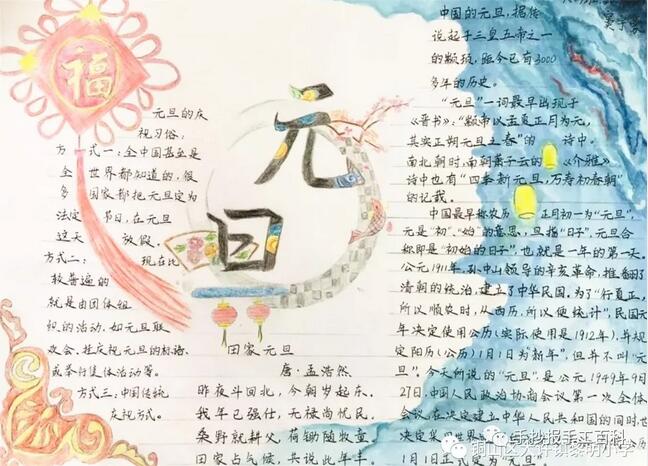 福
元旦
元旦的庆
祝习俗：
方式一：全中国甚至是
全世界都知道的，很
多国家都把元旦定为
法定节日，在元旦
这天放假；
方式二：现在比
较普遍的
就是由团体组
织的活动，如元旦联
欢会、挂庆祝元旦的标语、
或举行集体活动等。
方式三：中国传统
庆祝方式。
田家元旦
唐·孟浩然
昨夜斗回北，今朝岁起东。
我年已强仕，无禄尚忧民。
桑野就耕父，荷锄随牧童。
田家占气候，共说此年丰。
中国的元旦，据传
说起于三皇五帝之一
的颛顼，距今已有3000
多年的历史。
“元旦”一词最早出现于
《晋书》：“颛帝以孟夏正月为元，
其实正朔元旦之春”的诗中。
南北朝时，南朝萧子云的《介雅》
诗中也有“四季新元旦，万寿初春朝”
的记载。
中国最早称农历正月初一为“元旦”，
元是“初”、“始”的意思，旦指“日子”，元旦合
称即是“初始的日子”，也就是一年的第一天。
公元1911年，孙中山领导的辛亥革命，推翻了
清朝的统治，建立了中华民国。为了“行夏正，
所以顺农时，从西历，所以便统计”，民国元
年决定使用公历（实际使用是1912年），并规
定阳历（公历）1月1日为“新年”，但并不叫“元
旦”。今天所说的“元旦”，是公元1949年9月
27日，中国人民政治协商会议第一次全体
会议，在决定建立中华人民共和国的同时，也
决定采用世界
1月1日正式定为“元旦”。
手抄报手工百科
铜山区大许镇黎明小学